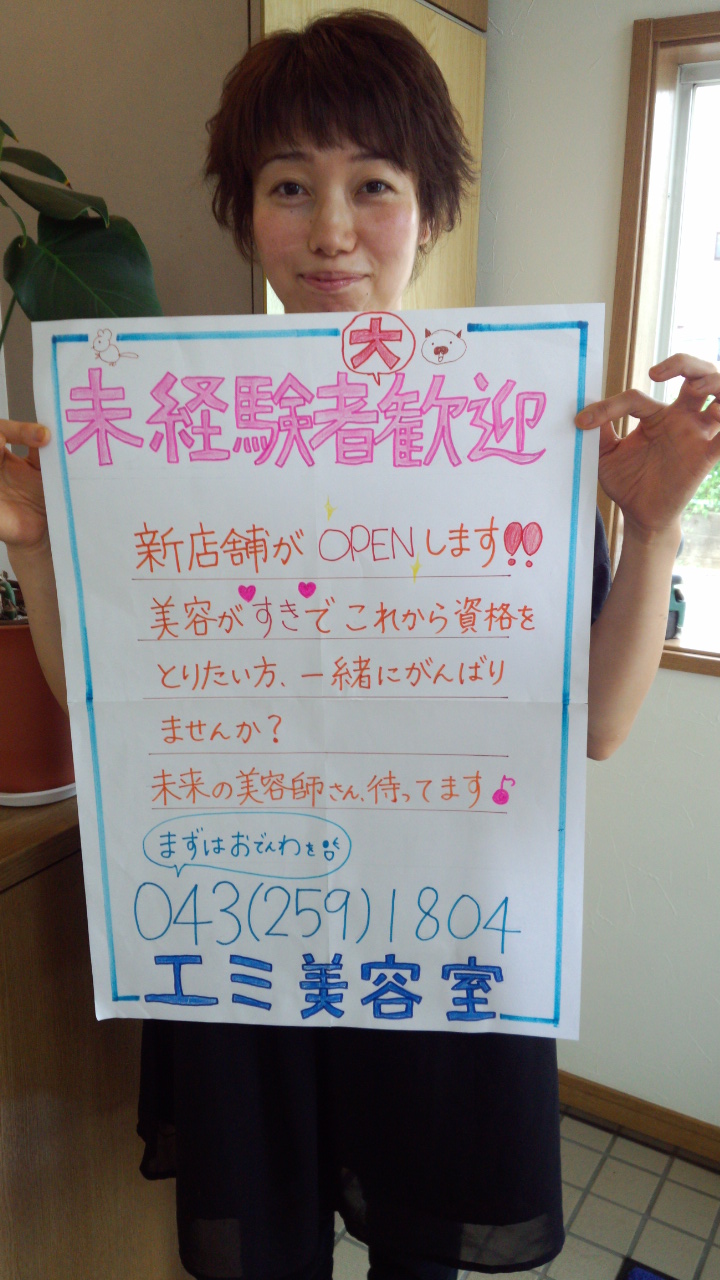 大
未経験者歓迎
新店舗が OPENします!!
美容がすきで これから資格を
とりたい方、一緒にがんばり
ませんか?
未来の美容師さん、待ってます♪
まずはおでんわを
043(259)1804
エミ美容室